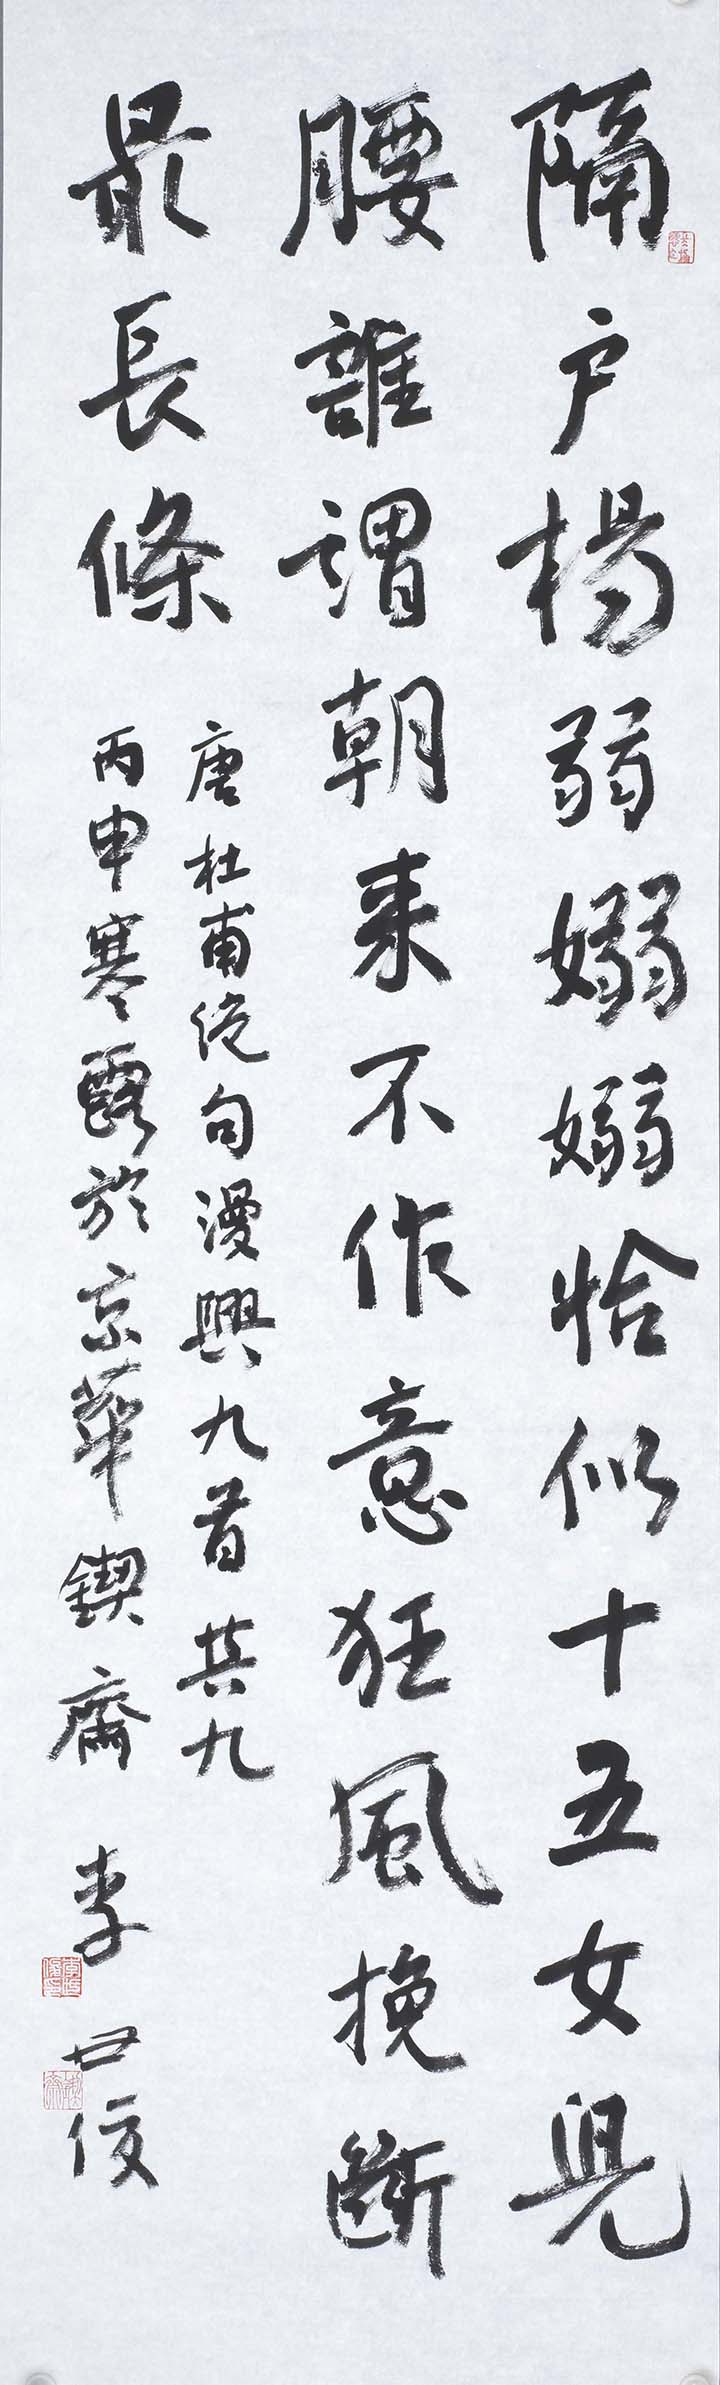 隔户楊弱嫋嫋恰似十五女兒
腰誰謂朝来不作意狂風挽斷
最長條
唐杜甫绝句漫興九首其九
丙申寒露於京華鍥齋 李世俊